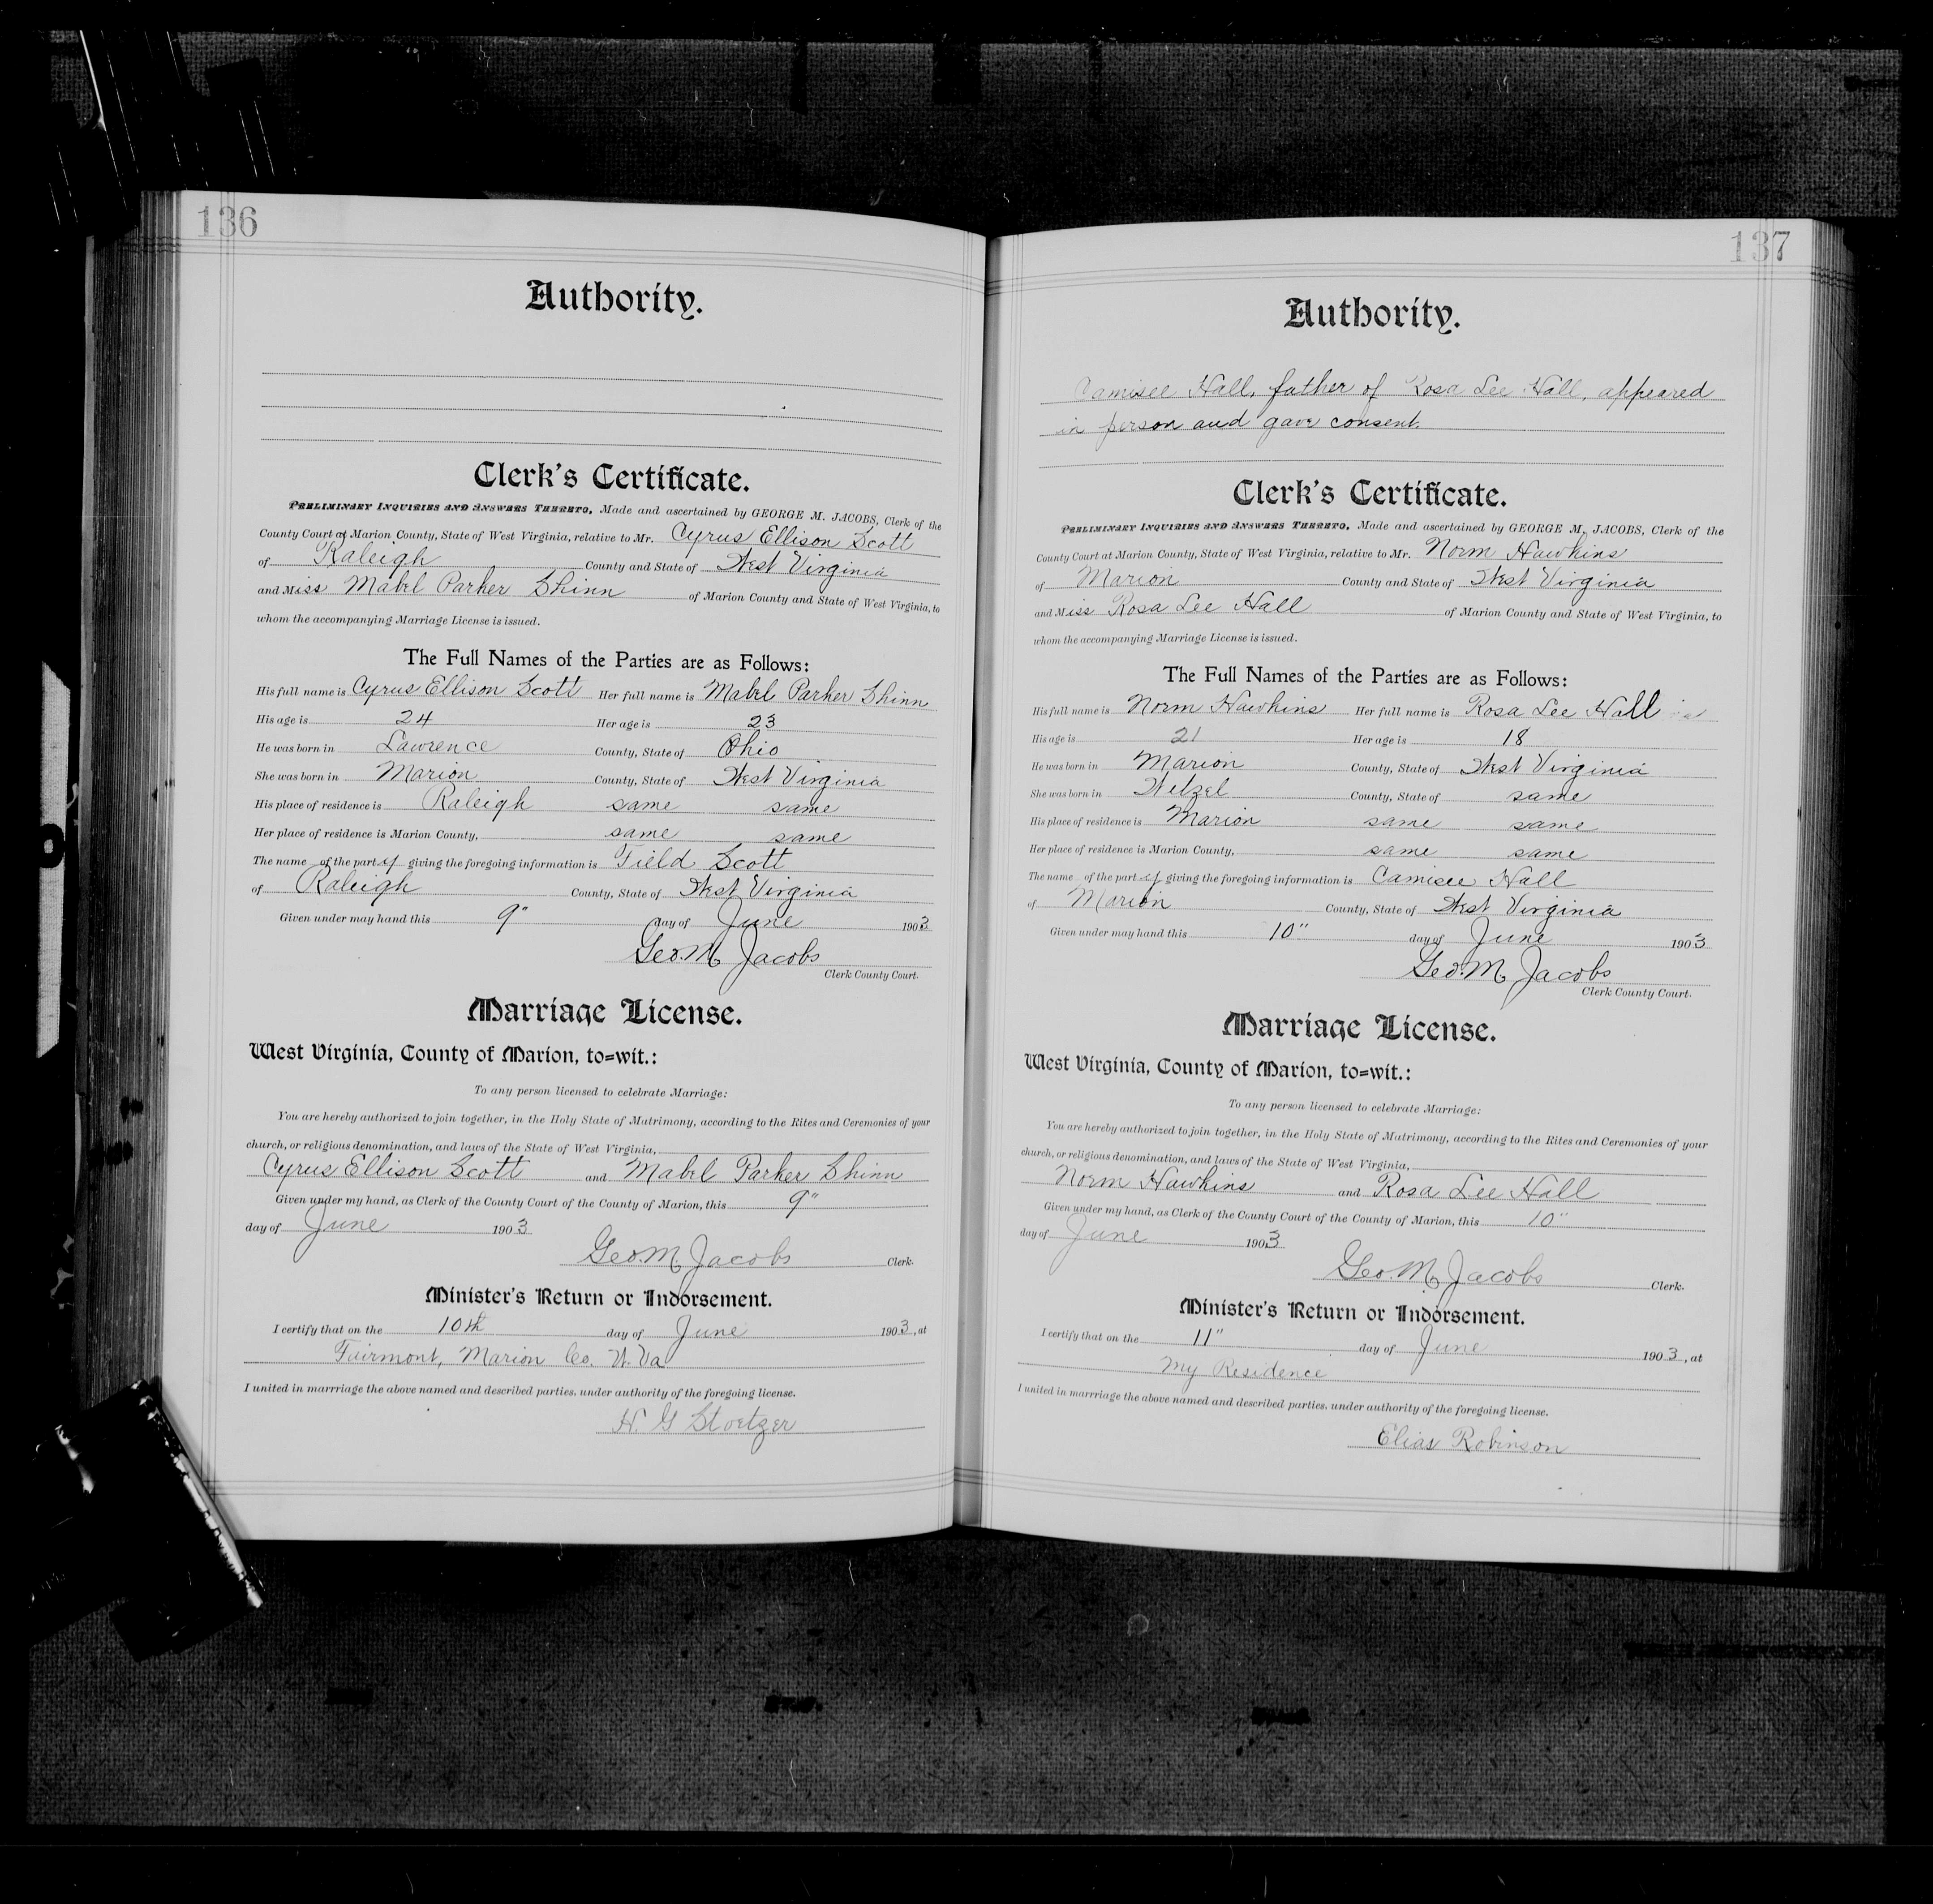 136
Authority.
Clerk's Certificate.
Preliminary Inquiries and Answers Thereto, Made and ascertained by GEORGE M. JACOBS, Clerk of the
County Court at Marion County, State of West Virginia, relative to Mr. Cyrus Ellison Scott
of Raleigh County and State of West Virginia
and Miss Mabel Parker Shinn of Marion County and State of West Virginia, to
whom the accompanying Marriage License is issued.
The Full Names of the Parties are as Follows:
His full name is Cyrus Ellison Scott Her full name is Mabel Parker Shinn
His age is 24 Her age is 23
He was born in Lawrence County, State of Ohio
She was born in Marion County, State of West Virginia
His place of residence is Raleigh same same
Her place of residence is Marion County, same same
The name of the party giving the foregoing information is Field Scott
of Raleigh County, State of West Virginia
Given under may hand this 9" day of June 1903
Geo. M. Jacobs
Clerk County Court.
Marriage License.
West Virginia, County of Marion, to=wit.:
To any person licensed to celebrate Marriage:
You are hereby authorized to join together, in the Holy State of Matrimony, according to the Rites and Ceremonies of your
church, or religious denomination, and laws of the State of West Virginia,
Cyrus Ellison Scott and Mabel Parker Shinn
Given under my hand, as Clerk of the County Court of the County of Marion, this 9"
day of June 1903
Geo. M. Jacobs Clerk.
Minister's Return or Indorsement.
I certify that on the 10th day of June 1903, at
Fairmont, Marion Co. W. Va
I united in marrriage the above named and described parties, under authority of the foregoing license.
H. G Stoetzer
137
Authority.
Camisee Hall, father of Rosa Lee Hall, appeared
in person and gave consent.
Clerk's Certificate.
Preliminary Inquiries and Answers Thereto, Made and ascertained by GEORGE M. JACOBS, Clerk of the
County Court at Marion County, State of West Virginia, relative to Mr. Norm Hawkins
of Marion County and State of West Virginia
and Miss Rosa Lee Hall of Marion County and State of West Virginia, to
whom the accompanying Marriage License is issued.
The Full Names of the Parties are as Follows:
His full name is Norm Hawkins Her full name is Rosa Lee Hall
His age is 21 Her age is 18
He was born in Marion County, State of West Virginia
She was born in Wetzel County, State of same
His place of residence is Marion same same
Her place of residence is Marion County, same same
The name of the party giving the foregoing information is Camisee Hall
of Marion County, State of West Virginia
Given under may hand this 10" day of June 1903
Geo. M. Jacobs
Clerk County Court.
Marriage License.
West Virginia, County of Marion, to=wit.:
To any person licensed to celebrate Marriage:
You are hereby authorized to join together, in the Holy State of Matrimony, according to the Rites and Ceremonies of your
church, or religious denomination, and laws of the State of West Virginia,
Norm Hawkins and Rosa Lee Hall
Given under my hand, as Clerk of the County Court of the County of Marion, this 10"
day of June 1903
Geo. M. Jacobs Clerk.
Minister's Return or Indorsement.
I certify that on the 11" day of June 1903, at
My Residence
I united in marrriage the above named and described parties, under authority of the foregoing license.
Elias Robinson